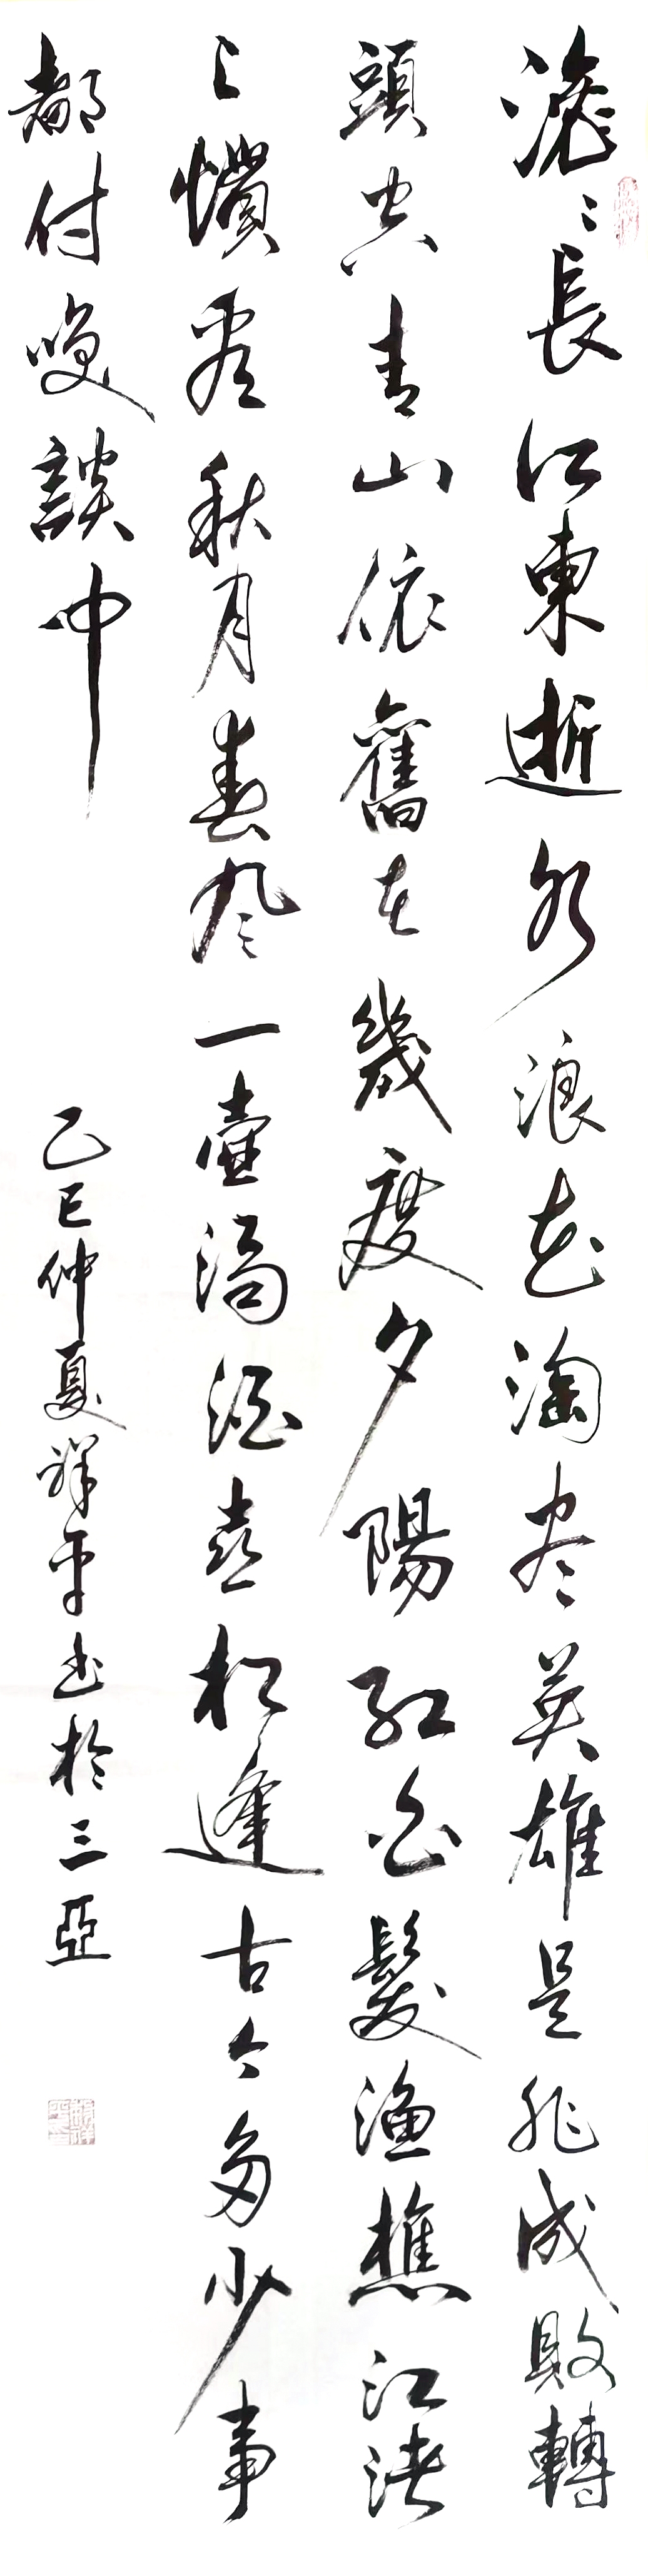 滚〻長江東逝水浪花淘尽英雄是非成敗轉
頭空青山依舊在幾度夕陽紅白髮渔樵江渚
上慣看秋月春風一壺濁酒喜相逢古今多少事
都付咲談中
乙巳仲夏祥平书於三亞